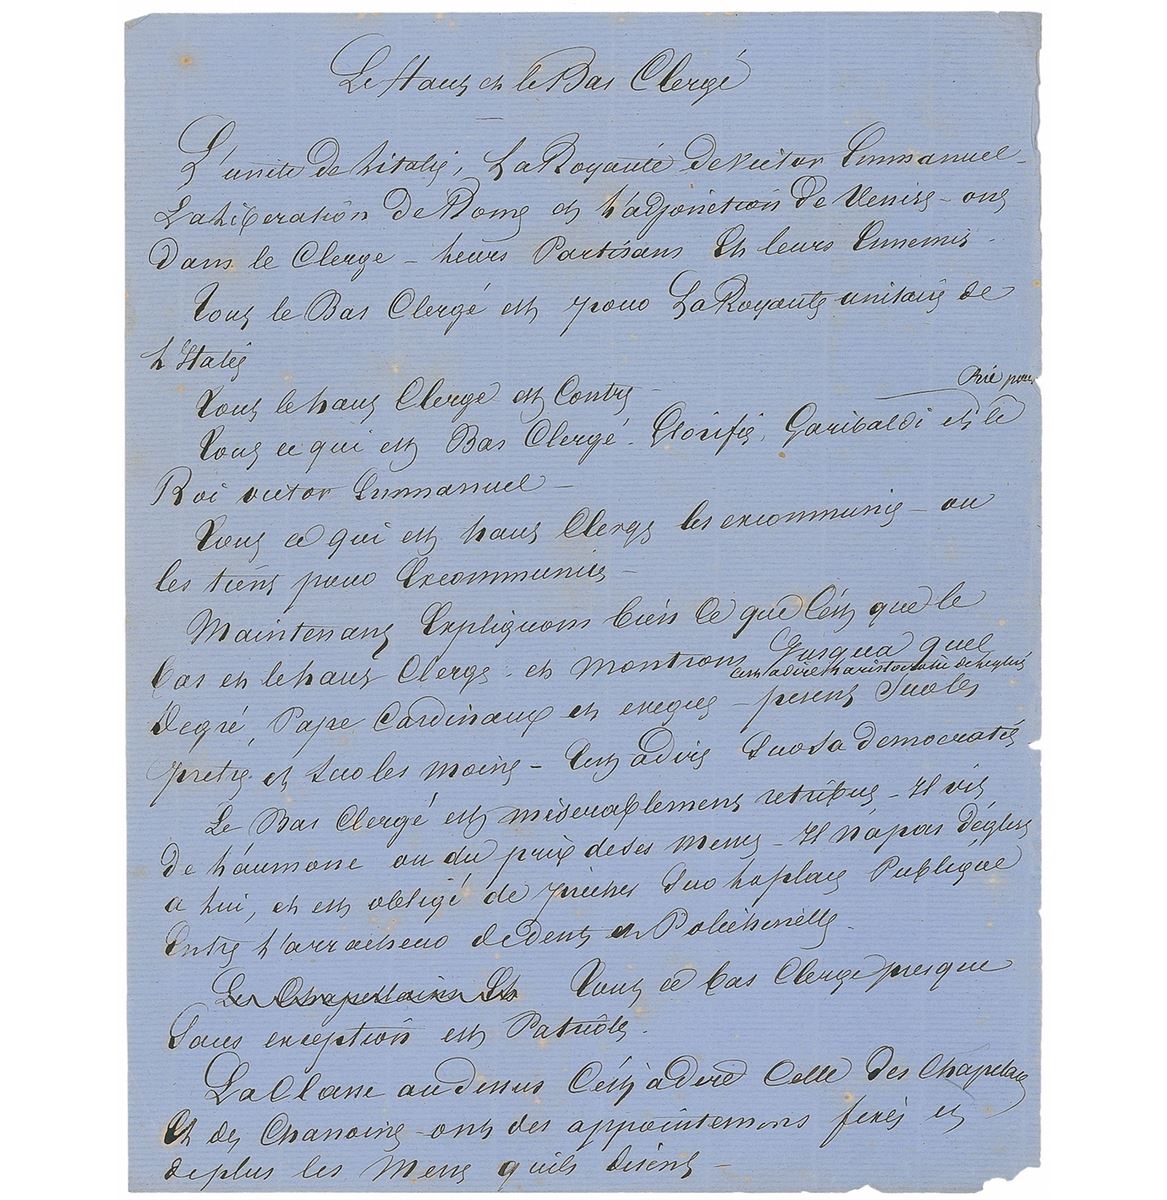 Le Haut et le Bas Clergé
L'unité de L'italie, La Royauté de Victor Emmanuel –
La Liberation de Rome et L'adjonction de Venise – ont
dans le Clergé – Leurs Partisans Et leurs Ennemis.
Tout le Bas Clergé est pour La Royauté unitaire de
L'Italie
Tout le haut Clergé est Contre –
Prie pour
Tout ce qui est Bas Clergé. Glorifie, Garibaldi et le
Roi victor Emmanuel –
Tout ce qui est haut Clergé les excommunie – ou
les tient pour Excommuniés –
Maintenant Expliquons bien ce que C'est que le
bas et le haut Clergé – et montrons Jusqu'a quel
C'est a dire L'aristocratie de L'eglise
degré, Pape Cardinaux et eveques – pesent Sur les
pretres et Sur les moines – C'est a dire Sur Sa democratie
Le Bas Clergé est miserablement retribué – Il vit
de L'aumone ou du prix de ses Messes – Il n'a pas d'église
a Lui, et est obligé de prêcher Sur La place Publique
Entre L'arracheur de dents et Polichinelle.
Les Chapelains Et Tout ce bas Clergé presque
Sans exception est Patriote.
La Classe au dessus C'est a dire Celle des Chapelains
Et des Chanoines – ont des appointemens fixes et
de plus les Messes qu'ils disent –